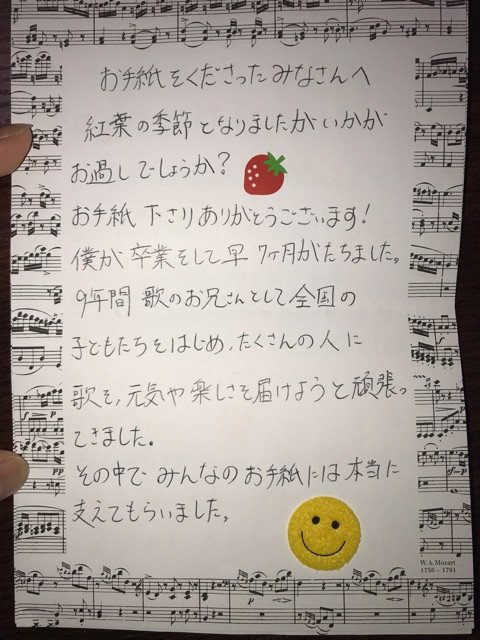 お手紙をくださったみなさんへ
紅葉の季節となりましたがいかが
お過しでしょうか?
お手紙下さりありがとうございます!
僕が卒業をして、早7ヶ月がたちました。
9年間歌のお兄さんとして全国の
子どもたちをはじめ、たくさんの人に
歌を、元気や楽しさを届けようと頑張っ
てきました。
その中でみんなのお手紙には本当に
支えてもらいました。
W. A. Mozart
1756 – 1791